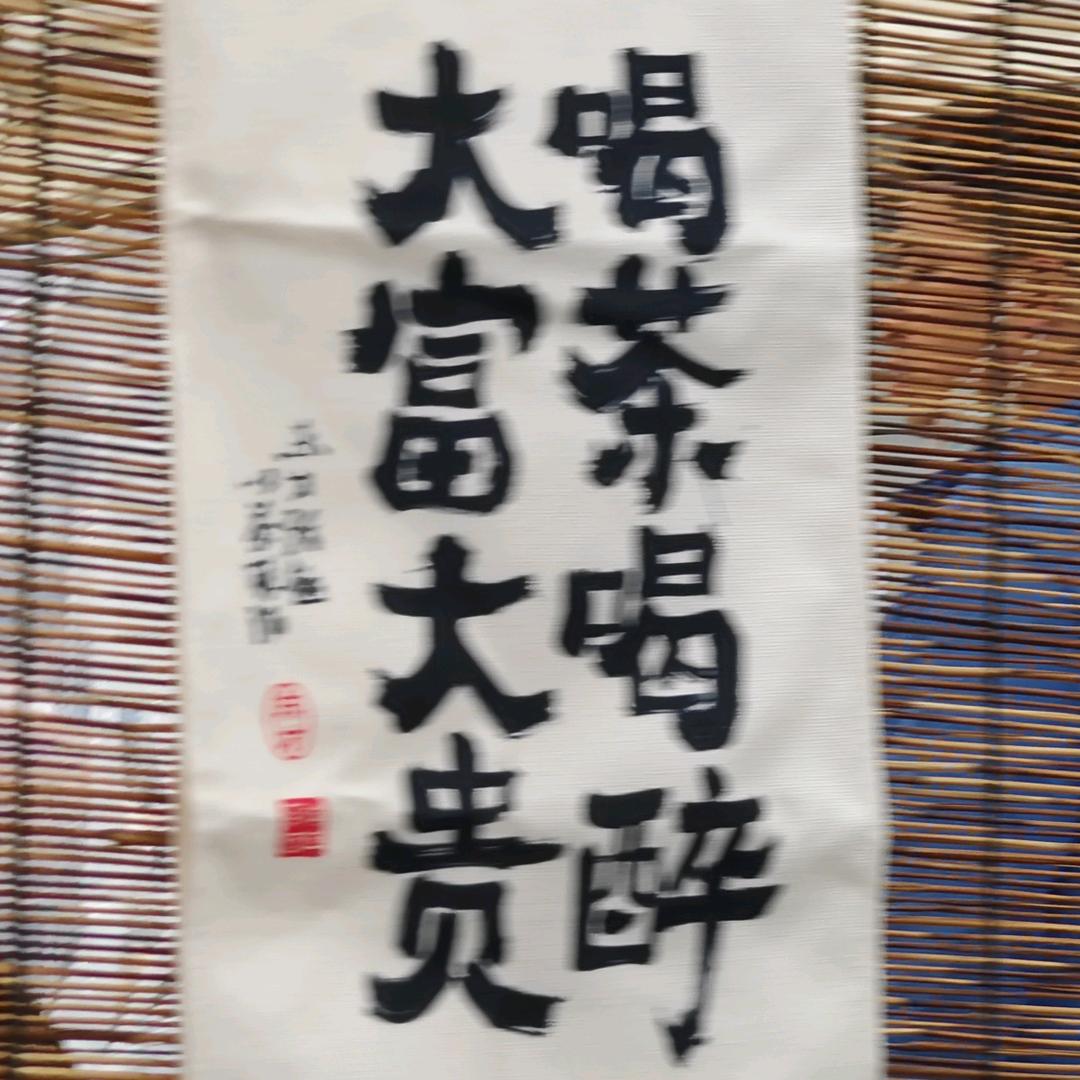 喝茶喝醉
大富大贵